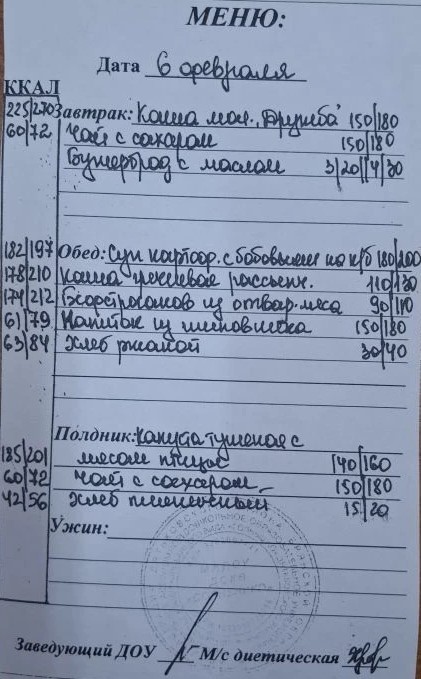 МЕНЮ:
Дата 6 февраля
ККАЛ
225/270 Завтрак: Каша мол. "Дружба" 150/180
60/72 Чай с сахаром 150/180
Бутерброд с маслом 3/20//4/30
182/197 Обед: Суп картоф. с бобовыми на к/б 180/200
178/210 Каша гречневая рассыпч. 110/130
174/212 Бефстроганов из отвар. мяса 90/110
61/79 Напиток из шиповника 150/180
63/84 Хлеб ржаной 30/40
Полдник: Капуста тушеная с
185/201 мясом птицы 140/160
60/72 Чай с сахаром 150/180
42/56 Хлеб пшеничный 15/20
Ужин:
Заведующий ДОУ М/с диетическая